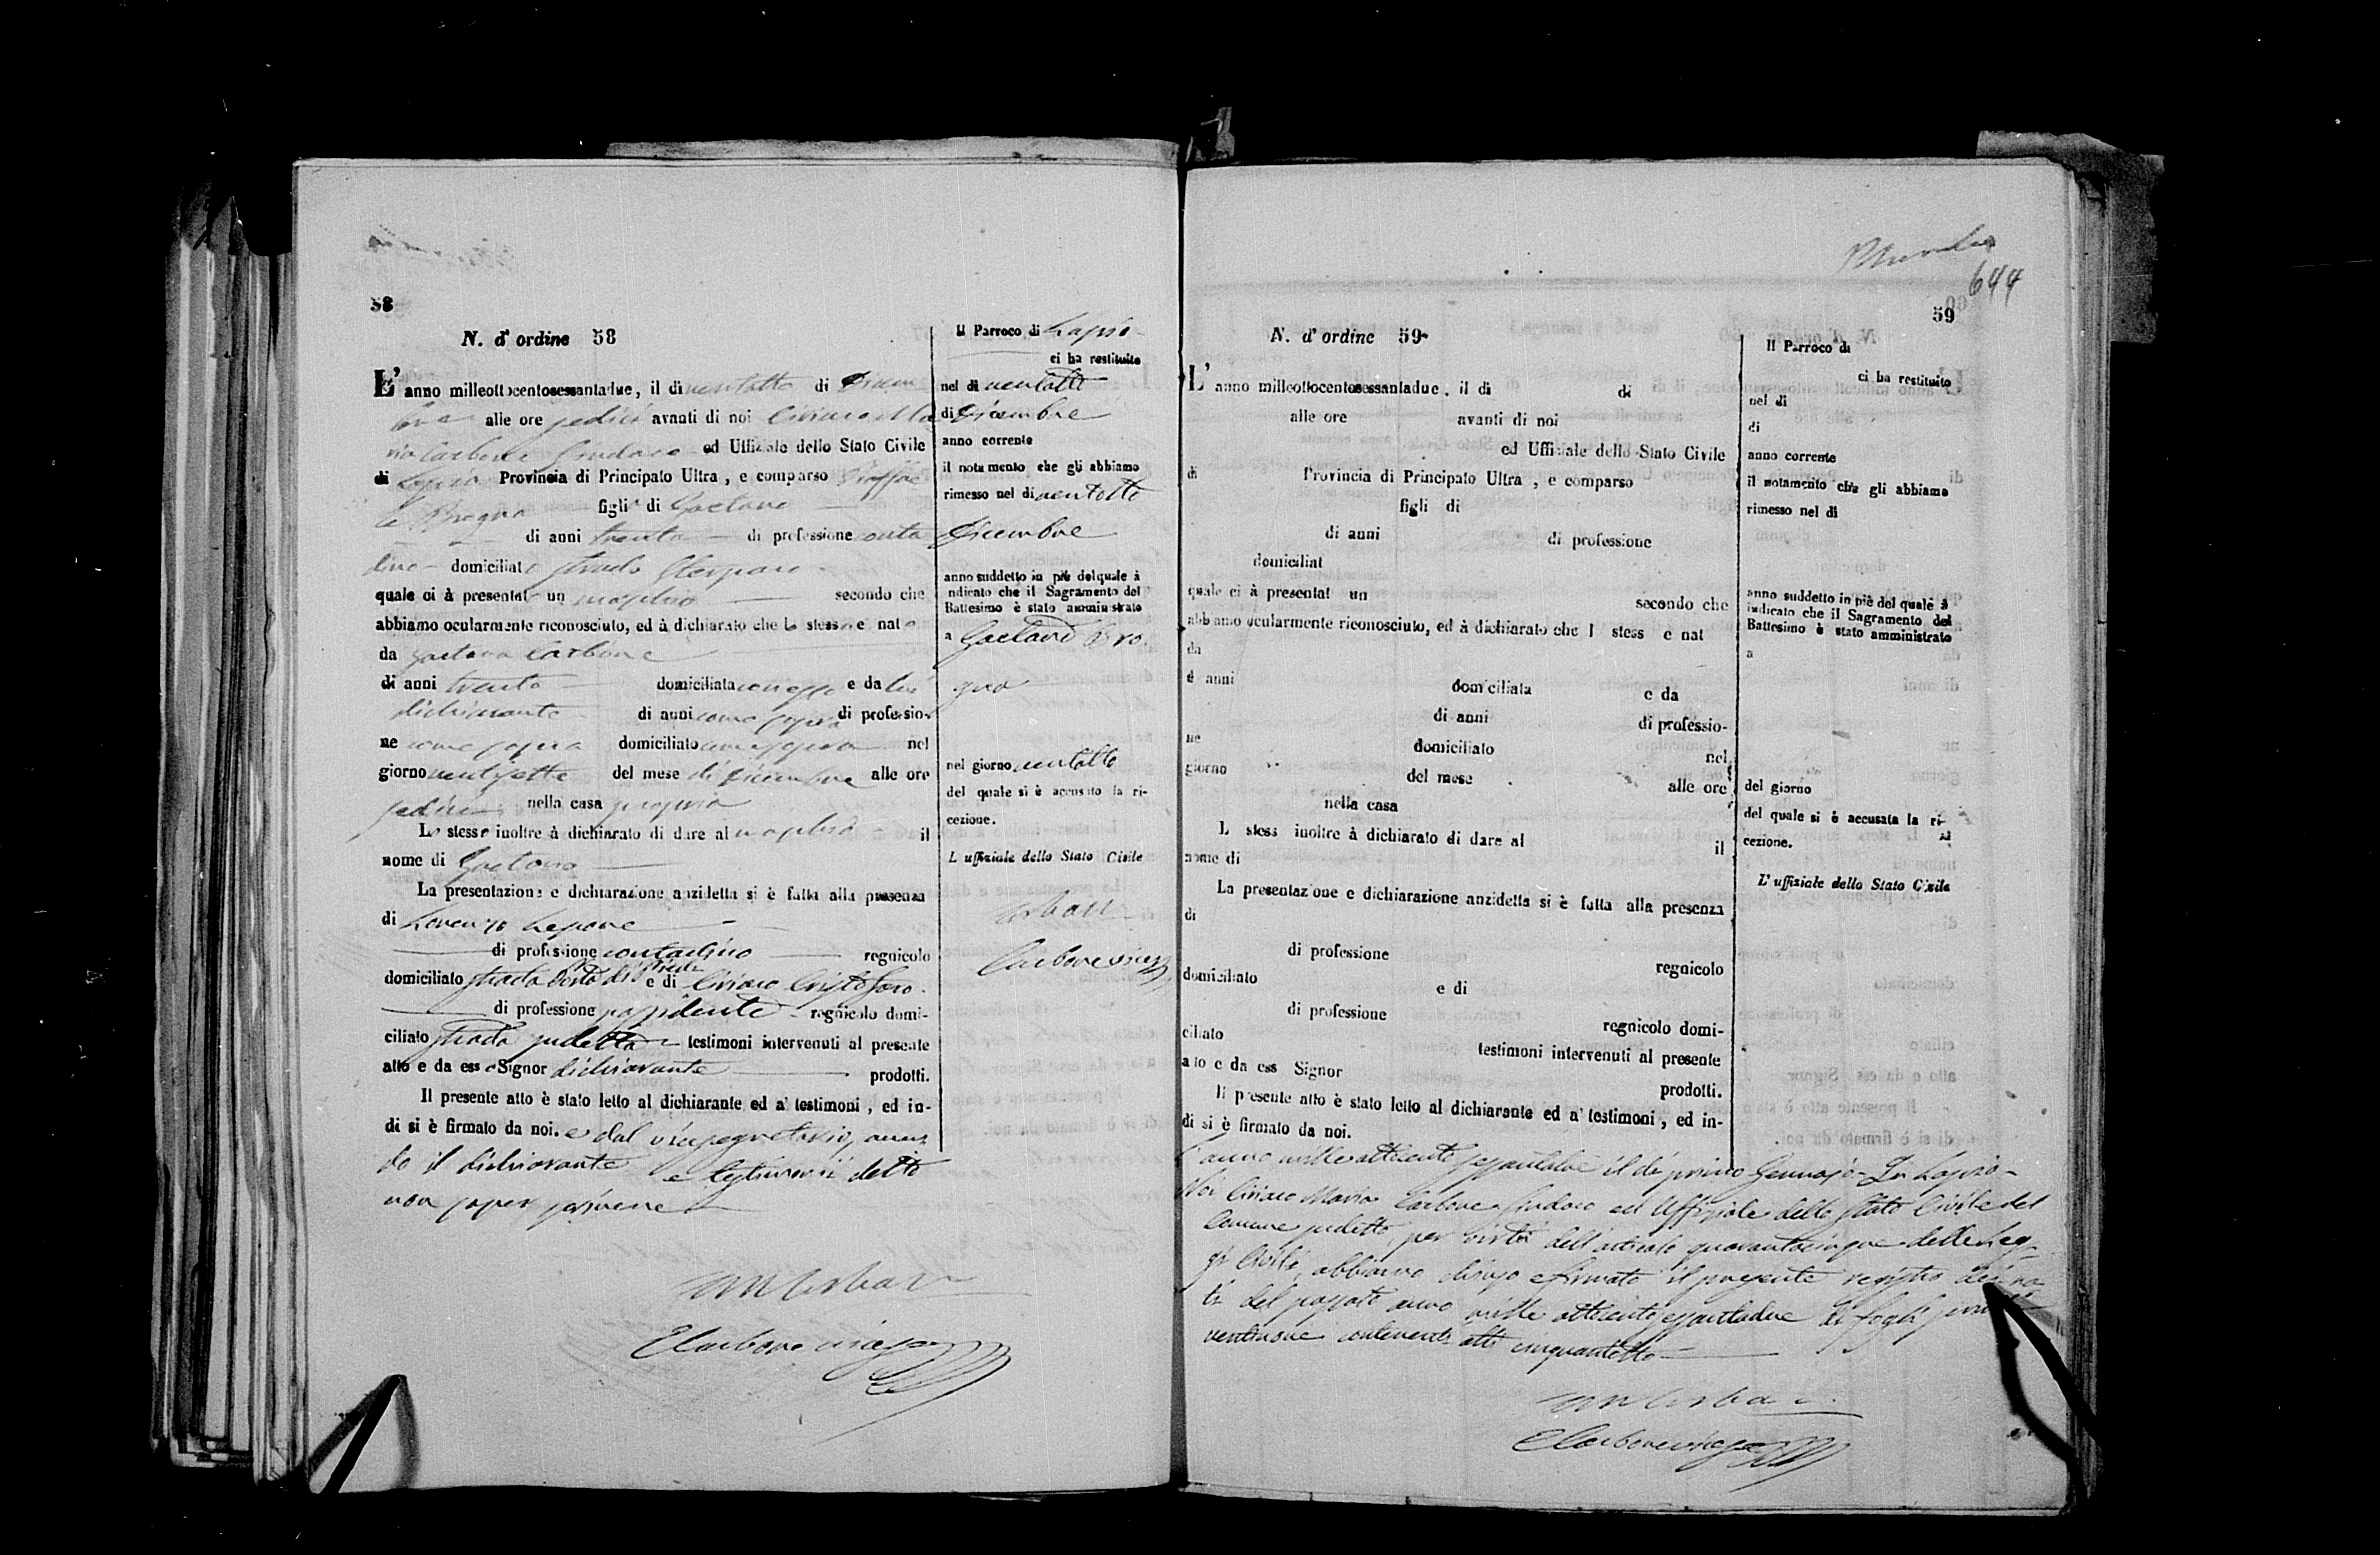 58
N. d'ordine 58
L'anno milleottocentosessantadue, il dì ventotto di Dicem
bre alle ore sedici avanti di noi Ciriaco Ma
ria Carbone Sindaco ed Uffiziale dello Stato Civile
di Lapio Provincia di Principato Ultra, e comparso Raffae
le Brogna figlio di Gaetano
di anni trenta di professione conta
dino domiciliato strada
quale ci à presentato un maschio secondo che
abbiamo ocularmente riconosciuto, ed à dichiarato che lo stesso e nato
da Gaetana Carbone
di anni trenta domiciliata con esso e da lui
dichiarante di anni come sopra di professio-
ne come sopra domiciliato come sopra nel
giorno ventisette del mese di Dicembre alle ore
sedici nella casa propria
Lo stesso inoltre à dichiarato di dare al maschio il
nome di Gaetano
La presentazione e dichiarazione anzidetta si è fatta alla presenza
di Lorenzo Lepore
di professione contadino regnicolo
domiciliato strada e di Ciriaco Cristofaro
di professione possidente regnicolo domi-
ciliato strada sudetta testimoni intervenuti al presente
atto e da esso Signor dichiarante prodotti.
Il presente atto è stato letto al dichiarante ed a' testimoni, ed in-
di si è firmato da noi. e dal vicesegretario, aven
do il dichiarante e testimonii detto
non saper scrivere
CM Carbone
Carbone
Il Parroco di Lapio
ci ha restituito
nel dì ventotto
di Dicembre
anno corrente
il notamento che gli abbiamo
rimesso nel dì ventotto
Dicembre
anno suddetto in piè del quale à
indicato che il Sagramento del
Battesimo è stato amministrato
a Gaetano Bro
gna
nel giorno ventotto
del quale si è accusato la ri-
cezione.
L'uffiziale dello Stato Civile
Carbone
59
644
N. d'ordine 59
L'anno milleottocentosessantadue, il dì di
alle ore avanti di noi
ed Uffiziale dello Stato Civile
di Provincia di Principato Ultra, e comparso
figli di
di anni di professione
domiciliat
quale ci à presentat un secondo che
abbiamo ocularmente riconosciuto, ed à dichiarato che l stess e nat
da
di anni domiciliata e da
di anni di professio-
ne domiciliato nel
giorno del mese alle ore
nella casa
L stess inoltre à dichiarato di dare al il
nome di
La presentazione e dichiarazione anzidetta si è fatta alla presenza
di
di professione regnicolo
domiciliato e di
di professione regnicolo domi-
ciliato testimoni intervenuti al presente
atto e da ess Signor prodotti.
Il presente atto è stato letto al dichiarante ed a' testimoni, ed in-
di si è firmato da noi.
L'anno milleottocento sessantatre il dì primo Gennajo In Lapio
Noi Ciriaco Maria Carbone Sindaco ed Uffiziale dello Stato Civile del
Comune sudetto, per virtù dell'articolo quarantacinque delle Leg
gi Civili, abbiamo chiuso e firmato il presente registro dei na
ti del passato anno mille ottocentosessantadue di fogli
ventinove contenente atti cinquantotto
CM Carbone
Carbone
Il Parroco di
ci ha restituito
nel dì
di
anno corrente
il notamento che gli abbiamo
rimesso nel dì
anno suddetto in piè del quale à
indicato che il Sagramento del
Battesimo è stato amministrato
a
del giorno
del quale si è accusata la ri-
cezione.
L'uffiziale dello Stato Civile